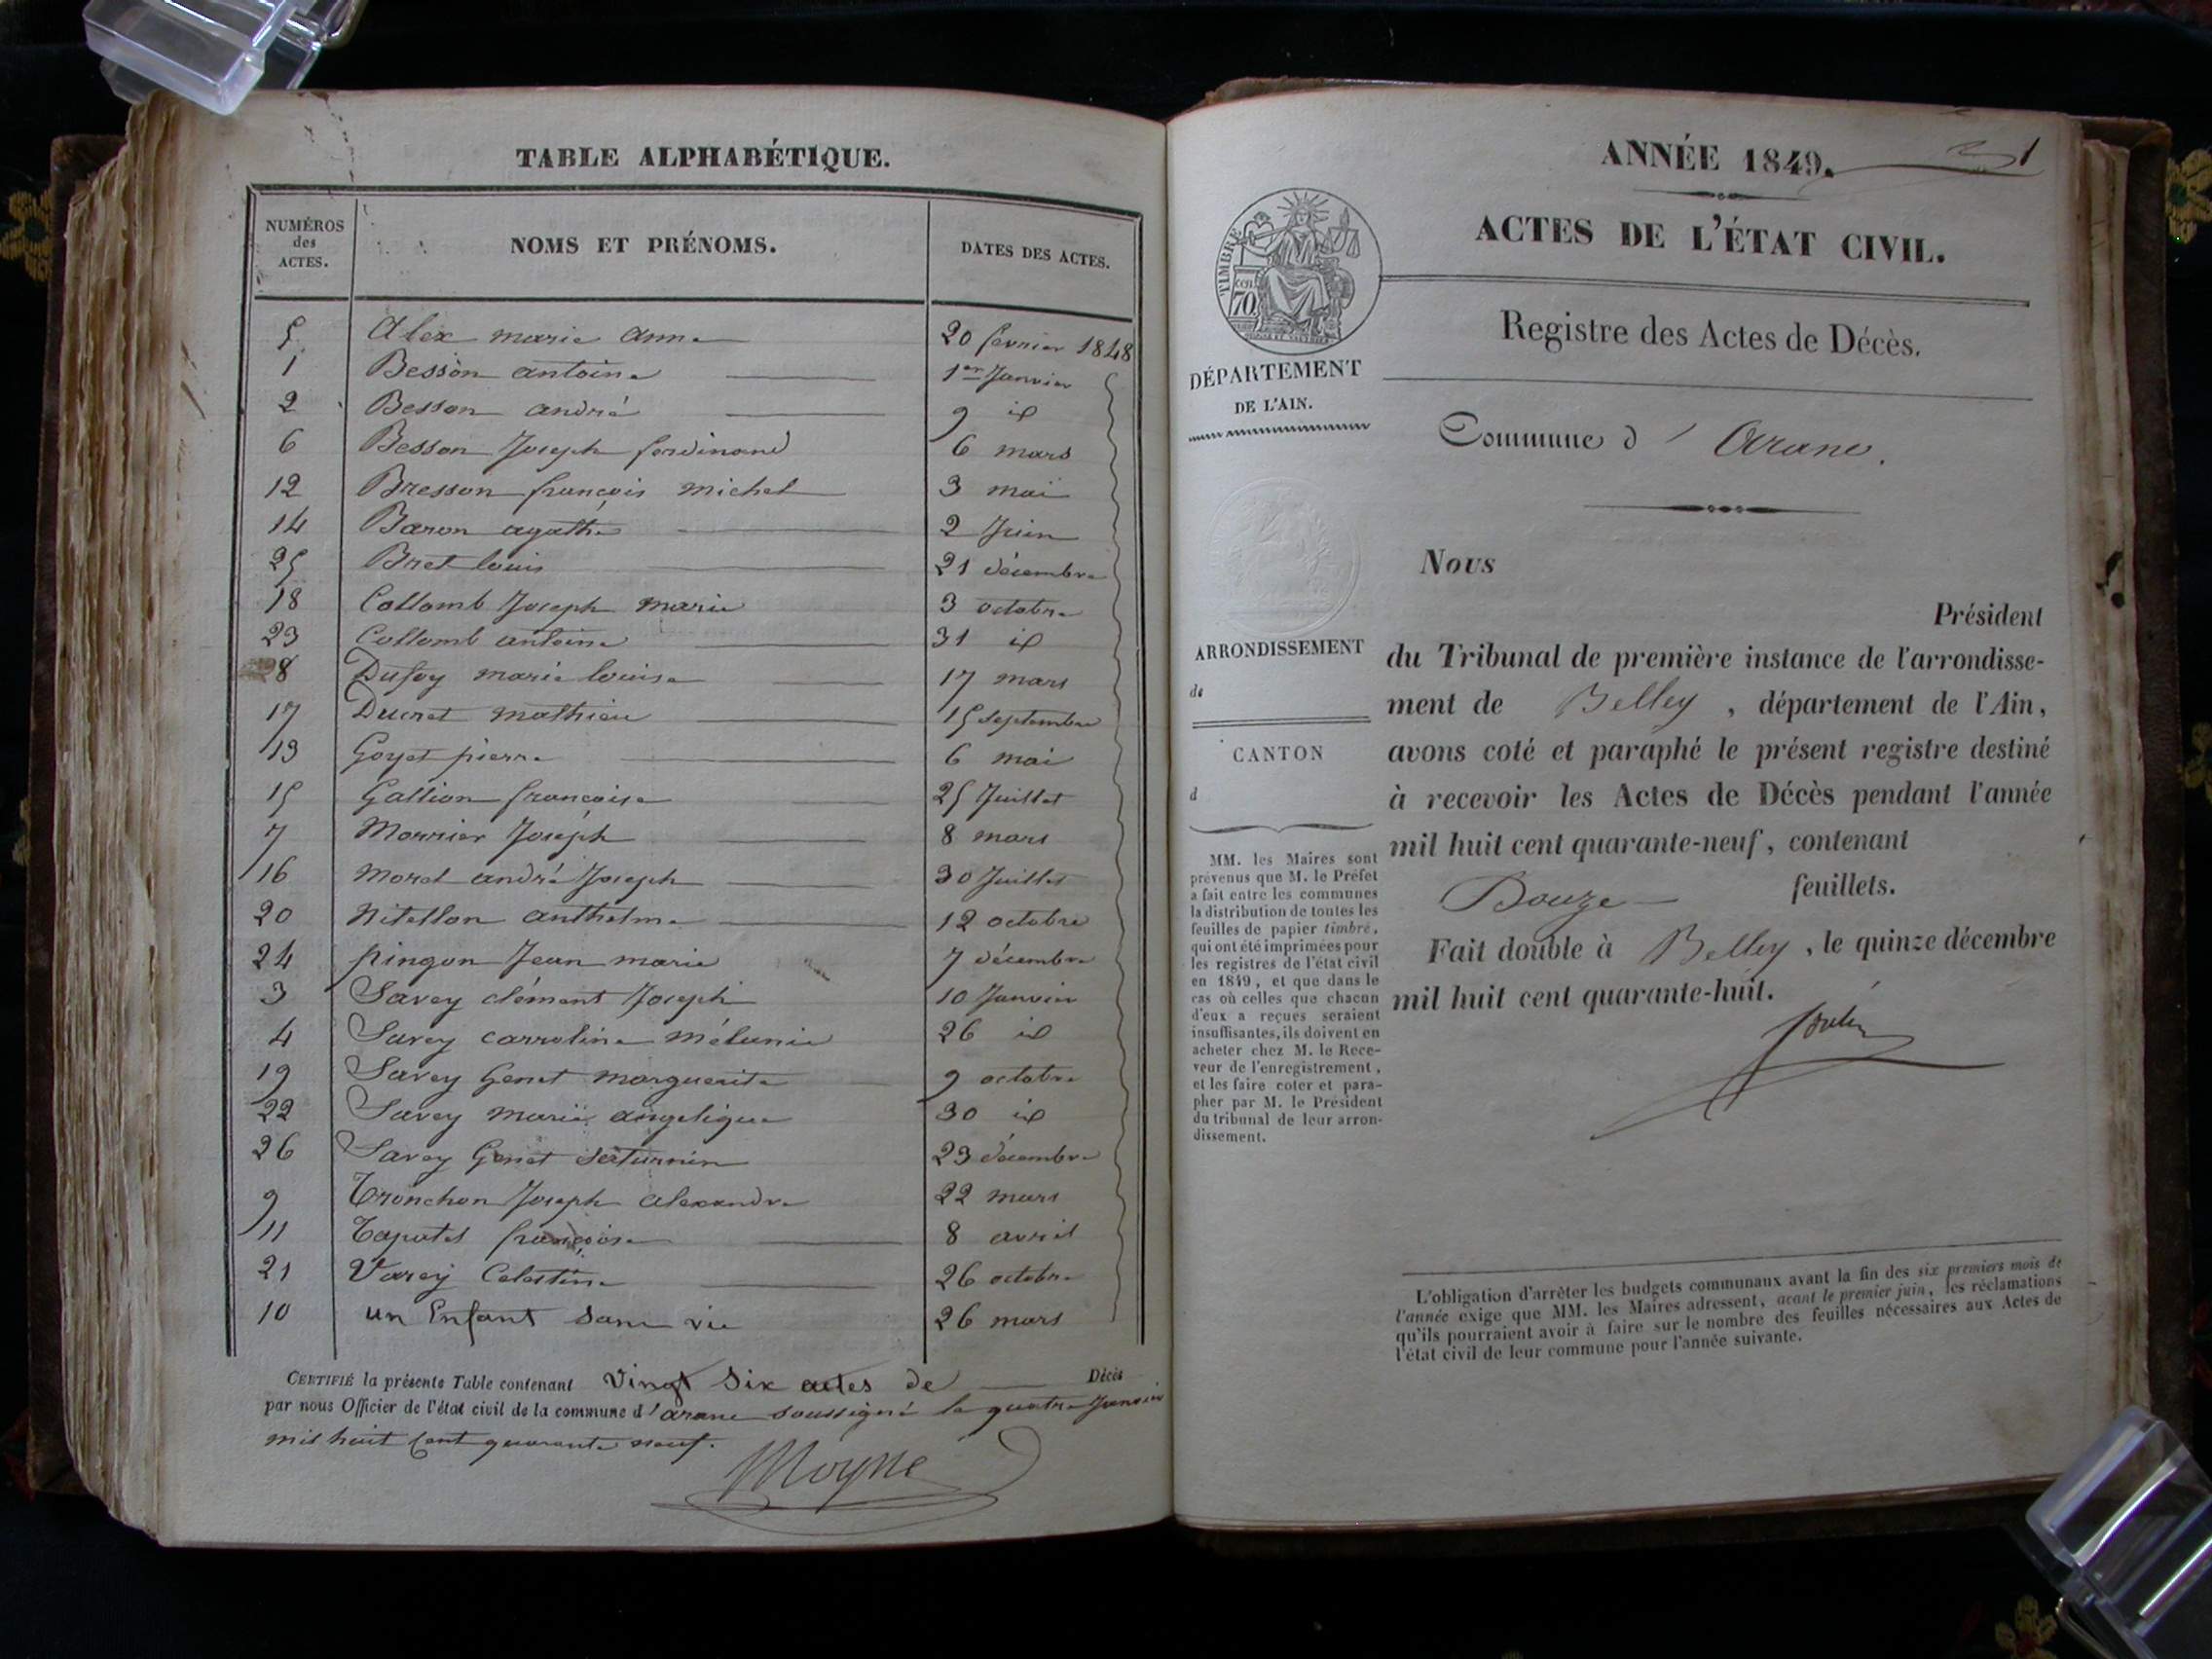 TABLE ALPHABÉTIQUE.
NUMÉROS des ACTES. NOMS ET PRÉNOMS. DATES DES ACTES.
5 Alex marie anne 20 fevrier 1848
1 Besson antoine 1er Janvier
2 Besson andré 9 id
6 Besson Joseph ferdinand 6 mars
12 Bresson françois michel 3 mai
14 Baron agathe 2 Juin
25 Bret louis 21 décembre
18 Collomb Joseph marie 3 octobre
23 Collomb antoine 31 id
8 Dufoy marie louise 17 mars
17 Ducret mathieu 15 septembre
13 Goyet pierre 6 mai
15 Gallion françoise 25 Juillet
7 Monnier Joseph 8 mars
16 Morel andré Joseph 30 Juillet
20 Nitellon anthelme 12 octobre
24 pingon Jean marie 7 décembre
3 Savey clément Joseph 10 Janvier
4 Savey carroline mélanie 26 id
19 Savey Genet marguerite 9 octobre
22 Savey marie angelique 30 id
26 Savey Genet saturnin 23 décembre
9 Tronchon Joseph alexandre 22 mars
11 Taputet françoise 8 avril
21 Varey Celestine 26 octobre
10 un Enfant sans vie 26 mars
CERTIFIÉ la présente Table contenant vingt six actes de Décès
par nous Officier de l'état civil de la commune d'arane soussigné le quatre Janvier
mil huit cent quarante neuf.
Moyne
ANNÉE 1849. 1
ACTES DE L'ÉTAT CIVIL.
TIMBRE
70
Registre des Actes de Décès.
DÉPARTEMENT
DE L'AIN.
Commune d'Arane.
Nous
Président
ARRONDISSEMENT
de
CANTON
d
du Tribunal de première instance de l'arrondisse-
ment de Belley, département de l'Ain,
avons coté et paraphé le présent registre destiné
à recevoir les Actes de Décès pendant l'année
mil huit cent quarante-neuf, contenant
Douze feuillets.
Fait double à Belley, le quinze décembre
mil huit cent quarante-huit.
MM. les Maires sont
prévenus que M. le Préfet
a fait entre les communes
la distribution de toutes les
feuilles de papier timbré,
qui ont été imprimées pour
les registres de l'état civil
en 1849, et que dans le
cas où celles que chacun
d'eux a reçues seraient
insuffisantes, ils doivent en
acheter chez M. le Rece-
veur de l'enregistrement,
et les faire coter et para-
pher par M. le Président
du tribunal de leur arron-
dissement.
L'obligation d'arrêter les budgets communaux avant la fin des six premiers mois de
l'année exige que MM. les Maires adressent, avant le premier juin, les réclamations
qu'ils pourraient avoir à faire sur le nombre des feuilles nécessaires aux Actes de
l'état civil de leur commune pour l'année suivante.